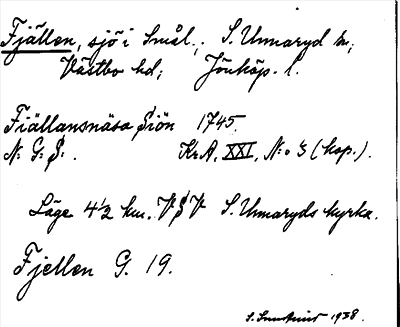 Fjällen, sjö i Smål.; S. Unnaryd sn;
Västbo hd; Jönköp. l.
Fiällansnäsa Siön 1745.
N: G: S: . Kr.A. XXI. N:o 3 (kop.).
Läge 4½ km. VSV S. Unnaryds kyrka.
Fjellen G. 19.
1938